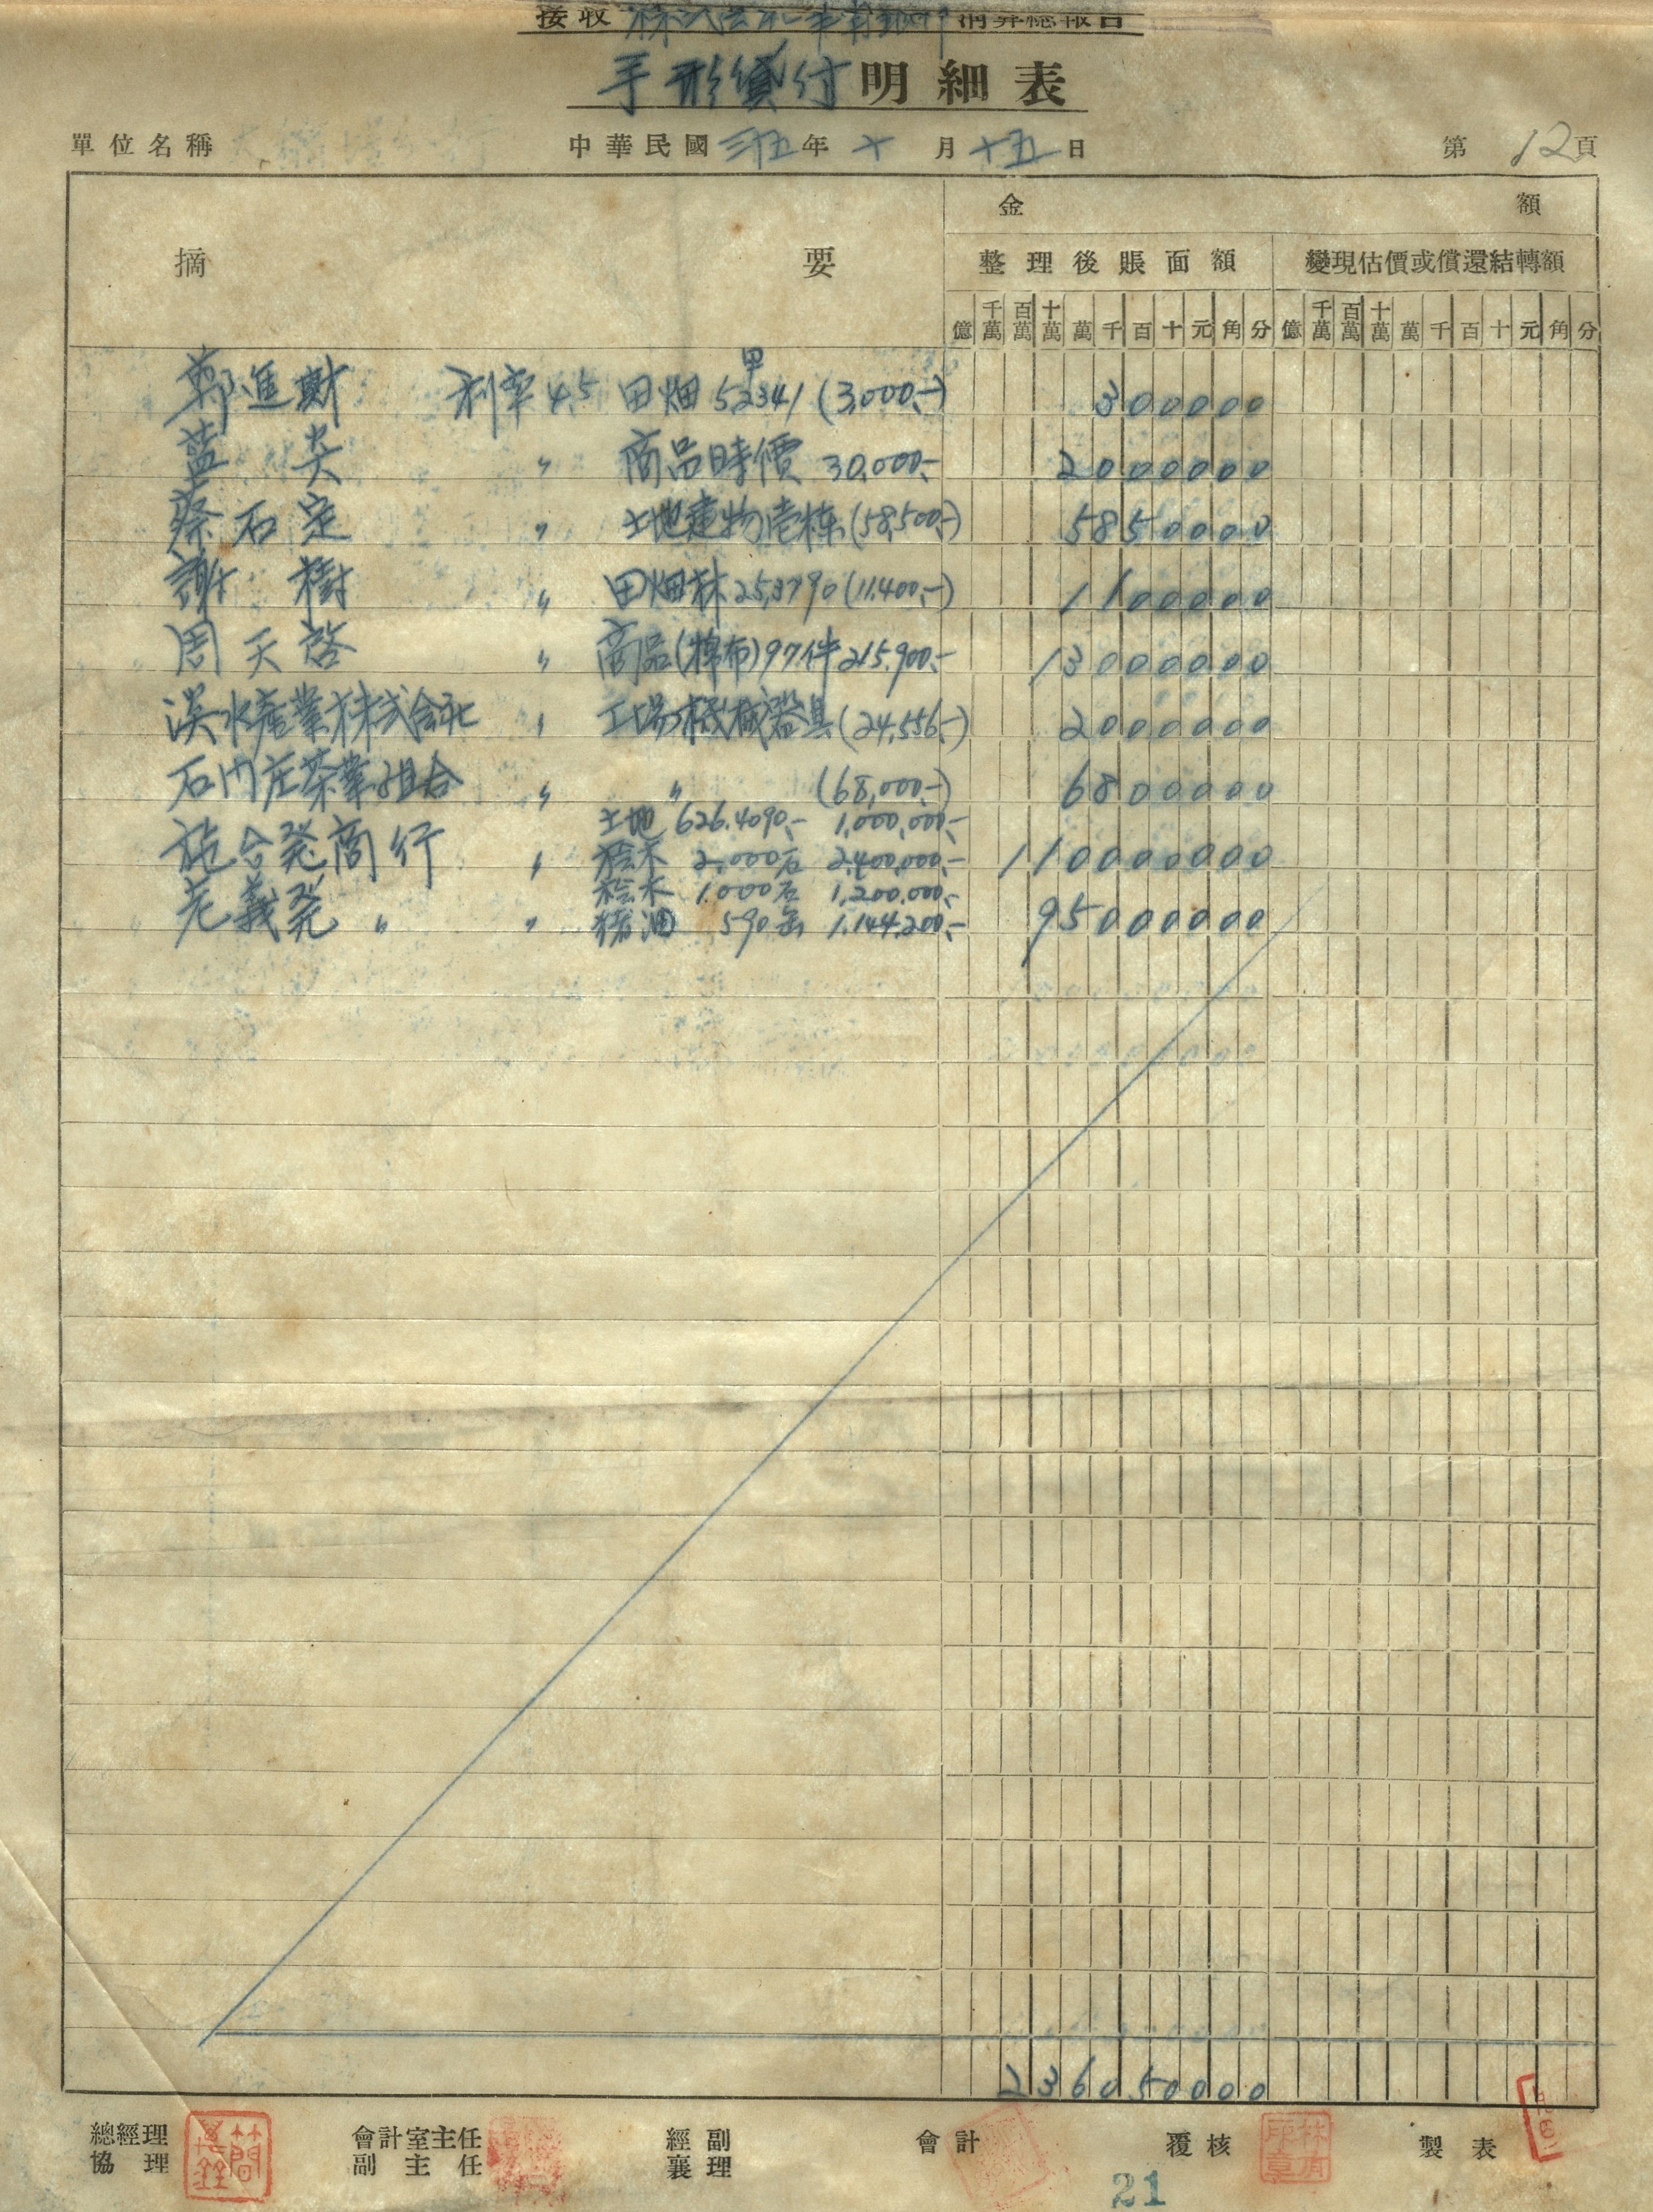 接收 株式会社華南銀行 清算總報告
手形貸付明細表
單位名稱 中華民國 三五年 十月 十五日 第 12 頁
金額
摘要 整理後賬面額 變現估價或償還結轉額
億 千萬 百萬 十萬 萬 千 百 十 元 角 分 億 千萬 百萬 十萬 萬 千 百 十 元 角 分
甲
鄭進財 利率 4.5 田畑 5,2341 (3,000.-) 300000
藍 炎 〃 商品時價 30,000.- 2000000
蔡石定 〃 土地建物壱棟 (58,500.-) 5850000
謝 樹 〃 田畑林 25,3790 (11,400.-) 1100000
周天啓 〃 商品(棉布) 97件 215,900.- 13000000
淡水産業株式会社 〃 工場機械器具 (24,556.-) 2000000
石門庄茶業組合 〃 〃 (68,000.-) 6800000
土地 626.4090.- 1,000,000.-
施合発商行 〃 桧木 2,000石 2,400,000.- 110000000
桧木 1,000石 1,200,000.-
老義発 〃 〃 猪油 590缶 1,144,200.- 95000000
236050000
總經理 會計室主任 經副 會計 覆核 製表
協理 副主任 襄理
21